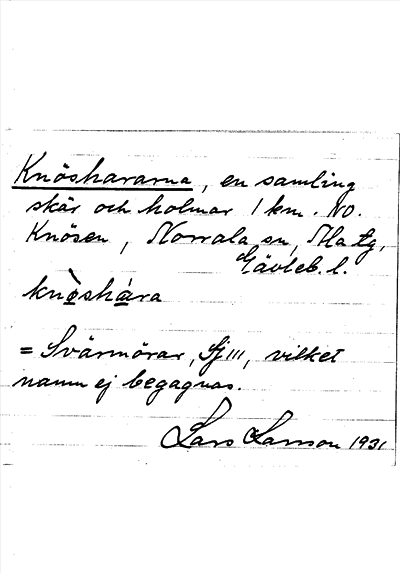 Knöshararna, en samling
skär och holmar 1 km. NO.
Knösen, Norrala sn, Ala tg,
Gävleb. l.
knøshára
= Svärmörar, Sj III, vilket
namn ej begagnas.
Lars Larsson 1931